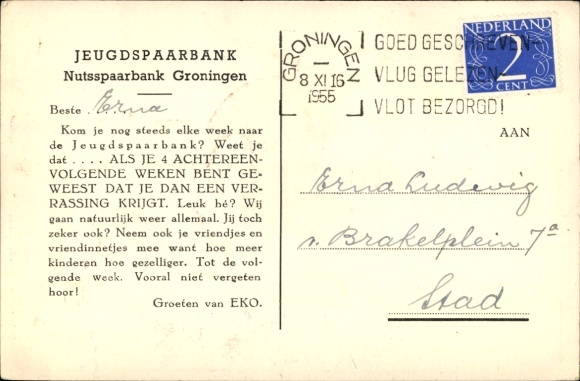 JEUGDSPAARBANK
Nutsspaarbank Groningen
Beste Erna
Kom je nog steeds elke week naar
de Jeugdspaarbank? Weet je
dat .... ALS JE 4 ACHTEREEN-
VOLGENDE WEKEN BENT GE-
WEEST DAT JE DAN EEN VER-
RASSING KRIJGT. Leuk hé? Wij
gaan natuurlijk weer allemaal. Jij toch
zeker ook? Neem ook je vriendjes en
vriendinnetjes mee want hoe meer
kinderen hoe gezelliger. Tot de vol-
gende week. Vooral niet vergeten
hoor!
Groeten van EKO.
GRONINGEN
8 XI 16
1955
GOED GESCHREVEN-
VLUG GELEZEN-
VLOT BEZORGD!
NEDERLAND
2
CENT
AAN
Erna Ludwig
v. Brakelplein 7a
Stad